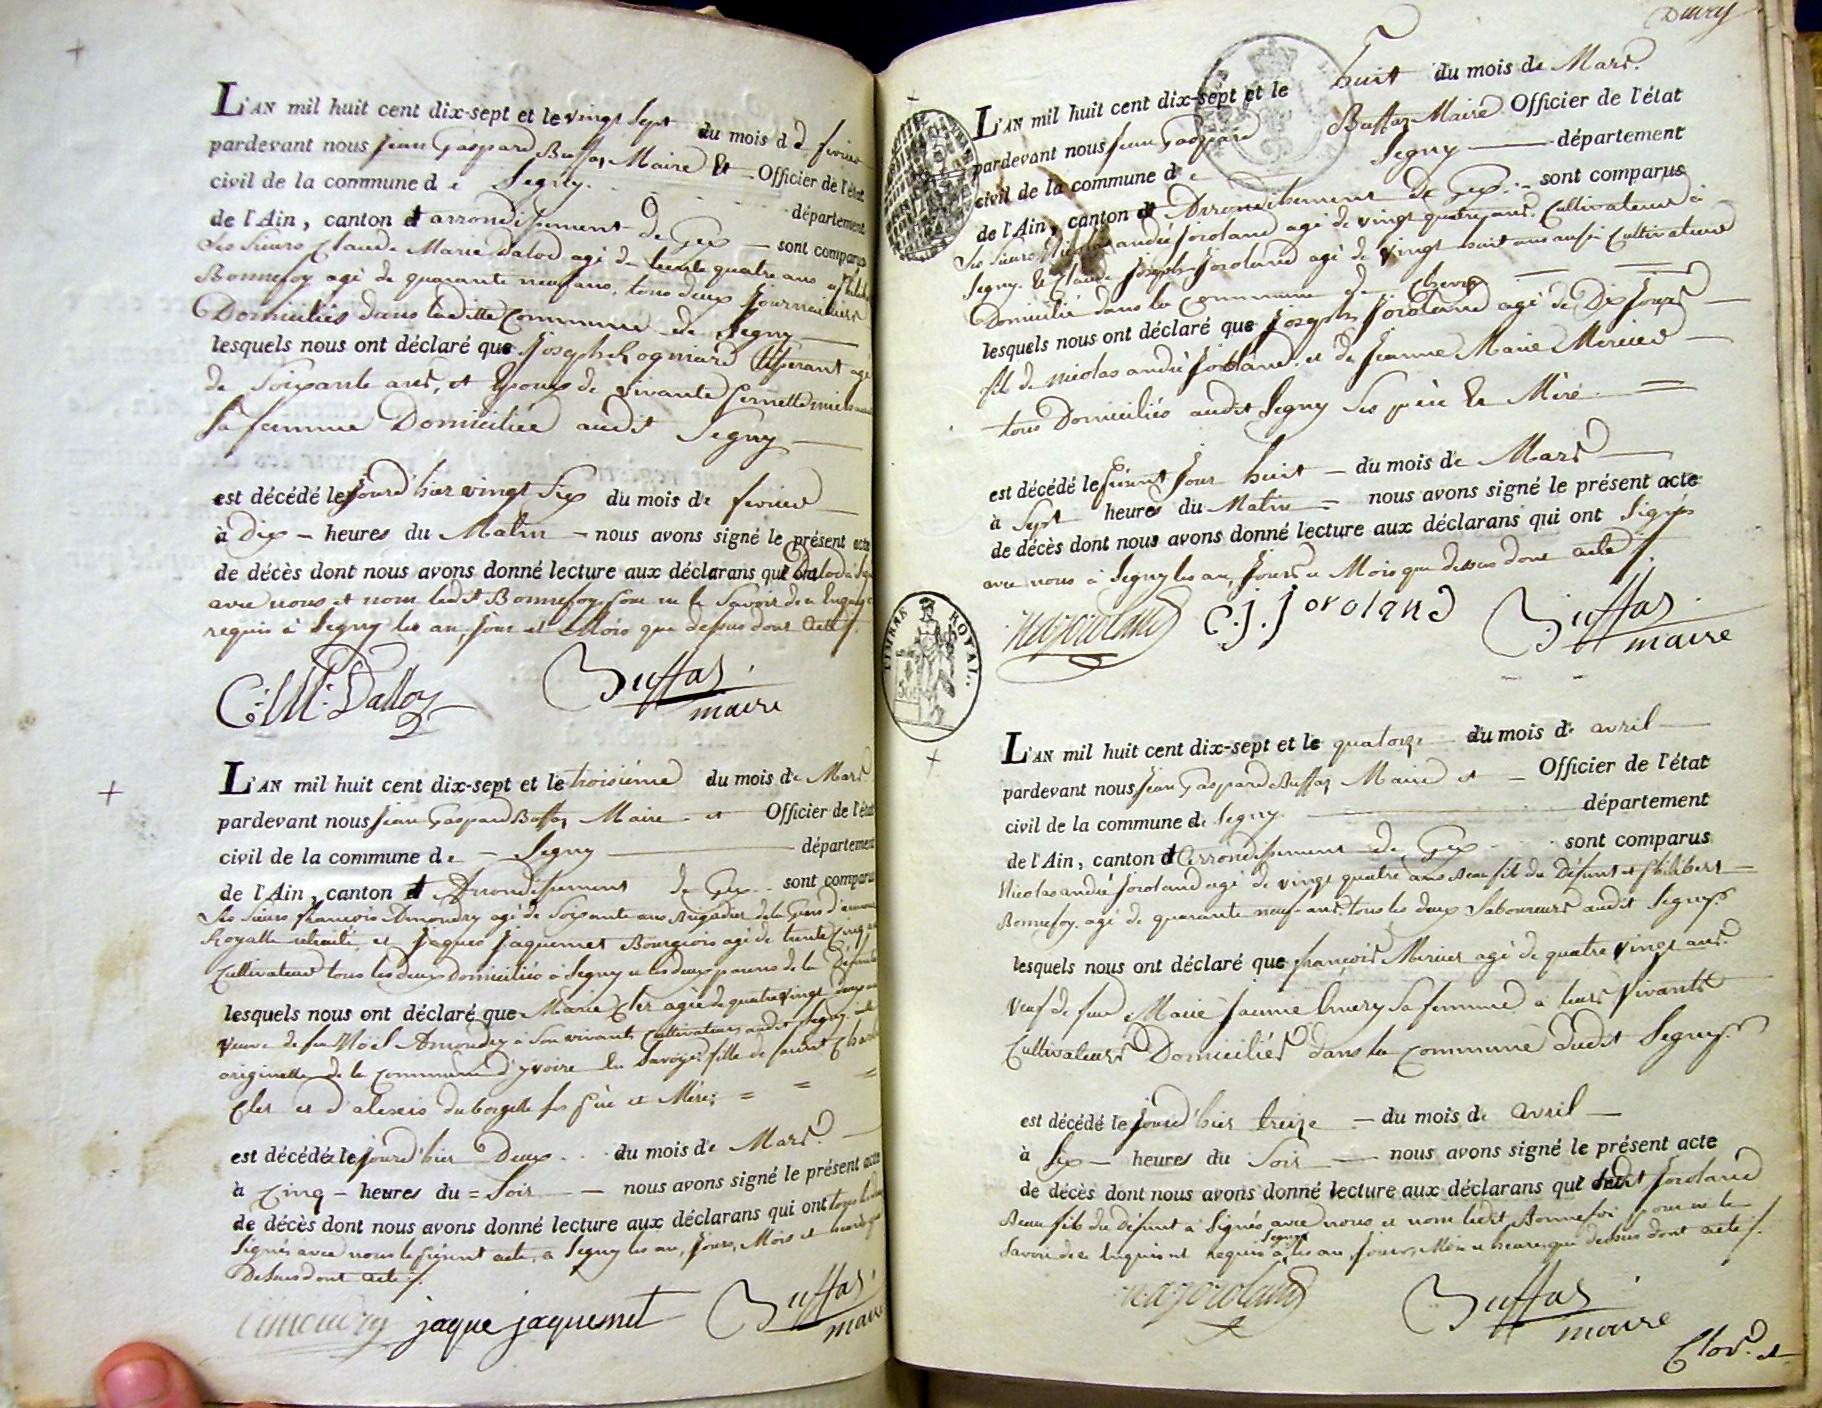 L'AN mil huit cent dix-sept et le vingt sept du mois d e fevrier
pardevant nous jean Gaspard Buffaz Maire Et Officier de l'état
civil de la commune d e Segny.
département
de l'Ain, canton et arrondissement de Gex — sont comparus
Les Sieurs Claude Marie Dalod agé de trente quatre ans et
Bonnefoy agé de quarante neuf ans, tous deux journaliers
Domiciliés dans ladite Commune de Segny
lesquels nous ont déclaré que Joseph agé
de Soixante ans, et Epoux de vivante Pernette
sa femme Domiciliée audit Segny
est décédé le jourd'hier vingt six du mois de fevrier
à Dix — heures du Matin — nous avons signé le présent acte
de décès dont nous avons donné lecture aux déclarans qui ont
avec nous et nom ledit Bonnefoy pour ne le Savoir de ce Enquis et
requis à Segny les an, jour et Mois que dessus dont acte
C: M: Dalloz Buffaz
maire
L'AN mil huit cent dix-sept et le troisième du mois de Mars
pardevant nous jean Gaspard Buffaz Maire et Officier de l'état
civil de la commune de — Segny — département
de l'Ain, canton et Arrondissement de Gex sont comparus
Les Sieurs françois Amoudry agé de Soixante ans Brigadier de la
Royalle retraité, et Jaques Jaquemet Bourgeois agé de trente cinq ans
Cultivateur tous les deux domiciliés à Segny
lesquels nous ont déclaré que Marie Cler agée de quatre vingt deux ans
veuve de feu Noël Amoudry à Son vivant Cultivateur audit Segny,
originelle de la Commune d'yvoire en Savoye, fille de
Cler et d'alexis ses Père et Mère; =
est décédée le jourd'hier Deux du mois de Mars
à Cinq — heures du = Soir — nous avons signé le présent acte
de décès dont nous avons donné lecture aux déclarans qui ont tous
Signés avec nous le présent acte, à Segny les an, jour, Mois et
Dessus dont acte
amoudry jaque jaquemet Buffaz
maire
L'AN mil huit cent dix-sept et le huit du mois de Mars.
pardevant nous jean Gaspard Buffaz Maire Officier de l'état
civil de la commune d e Segny — département
de l'Ain, canton et Arrondissement de Gex. — sont comparus
Les Sieurs Nicolas andré Joroland agé de vingt quatre ans. Cultivateur à
Segny. Et Claude Joseph Joroland agé de vingt huit ans aussi Cultivateur
Domicilié dans la Commune de
lesquels nous ont déclaré que Joseph Joroland agé de Dix jours
fils de nicolas andré Joroland. et de Jeanne Marie Mercier
tous Domiciliés audit Segny Ses père Et Mère. =
est décédé le présent jour huit — du mois de Mars
à Sept heures du Matin = nous avons signé le présent acte
de décès dont nous avons donné lecture aux déclarans qui ont Signés
avec nous à Segny les an, Jour et Mois que dessus dont acte
naJoroland C.j.joroland Buffaz
maire
TIMBRE ROYAL
L'AN mil huit cent dix-sept et le quatorze du mois de avril
pardevant nous jean Gaspard Buffaz Maire et — Officier de l'état
civil de la commune de Segny. département
de l'Ain, canton et arrondissement de Gex sont comparus
Nicolas andré Joroland agé de vingt quatre ans beau fils du Défunt et Philibert
Bonnefoy. agé de quarante neuf ans. tous les deux Laboureurs audit Segny.
lesquels nous ont déclaré que françois Mercier agé de quatre vingt ans.
veuf de feue Marie Jeanne Sa femme à leurs vivants
Cultivateurs Domiciliés dans la Commune dudit Segny.
est décédé le jourd'hier treize — du mois de avril —
à Six — heures du Soir — nous avons signé le présent acte
de décès dont nous avons donné lecture aux déclarans qui ledit Joroland
beau fils du défunt a Signés avec nous et nom ledit Bonnefoi pour ne le
Savoir de ce Enquis et requis à Segny les an, Jour, Mois et heure que dessus dont acte
naJoroland Buffaz
maire
Clos. et